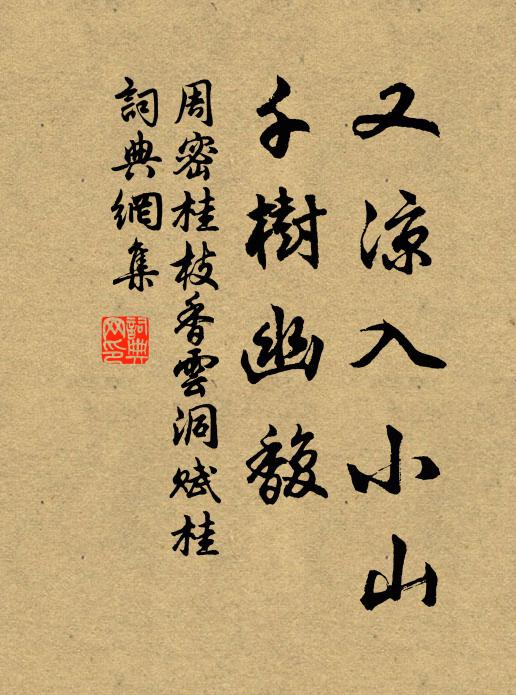 又涼入小山
千樹幽馥
周密桂枝香雲洞賦桂
詞典網集
詞典網印